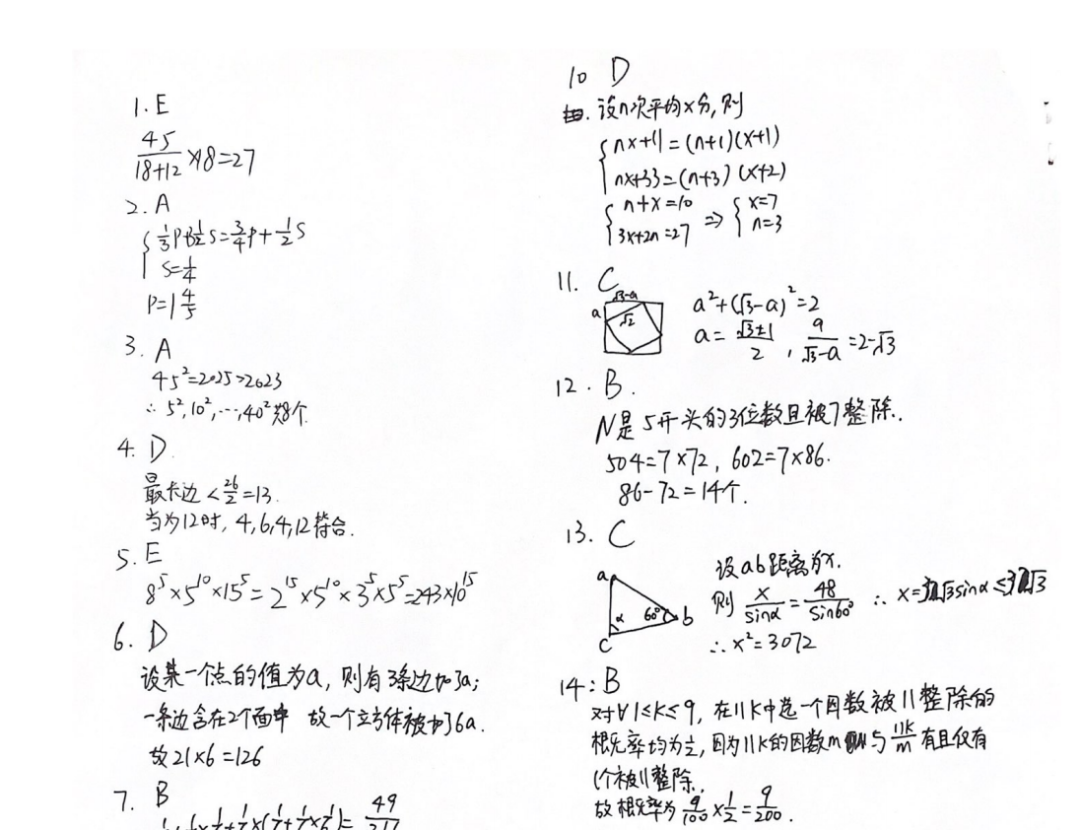 1. E
45/(18+12) ×18=27
2. A
S=1/4
P=1 4/5
3. A
45²=2025>2023
∴ 5²,10²,…,40²共8个.
4. D.
最长边<26/2=13.
当为12时, 4,6,4,12符合.
5. E
8⁵×5¹⁰×15⁵=2¹⁵×5¹⁰×3⁵×5⁵=243×10¹⁵
6. D
设某一个点的值为a, 则有3条边加了a;
一条边含在2个面中 故一个立方体被加了6a.
故21×6=126
7. B
10 D
设n次平均x分, 则
nx+11=(n+1)(x+1)
nx+33=(n+3)(x+2)
n+x=10
3x+2n=27 ⇒ { x=7
n=3
11. C
√3-a
a √2
a²+(√3-a)²=2
a=(√3±1)/2, a/(√3-a)=2-√3
12. B.
N是5开头的3位数且被7整除.
504=7×72, 602=7×86.
86-72=14个.
13. C
a α 60° b c
设ab距离为x.
则 x/sinα=48/sin60°
∴x²=3072
14: B
对∀1≤K≤9, 在11K中选一个因数被11整除的
概率均为1/2, 因为11K的因数m与11K/m有且仅有
1个被11整除.
故概率为9/100×1/2=9/200.